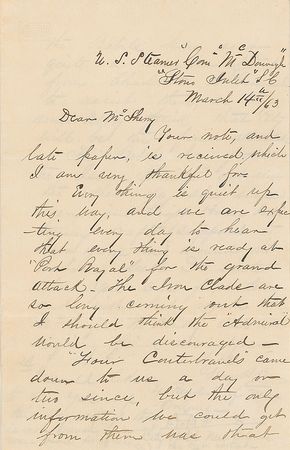 U. S. Steamer "Com' Mc Donough"
"Stono Inlet" S. C
March 14th /63
Dear Mc Sherry
Your note, and
late paper, is received, which
I am very thankful for
Every thing is quiet up
this way, and we are expec
ting every day to hear
that every thing is ready at
"Port Royal" for the grand
attack - The Iron Clads are
so long coming out that
I should think the "Admiral"
would be discouraged -
"Four Conterbrands" came
down to us a day or
two since, but the only
information we could get
from them was that